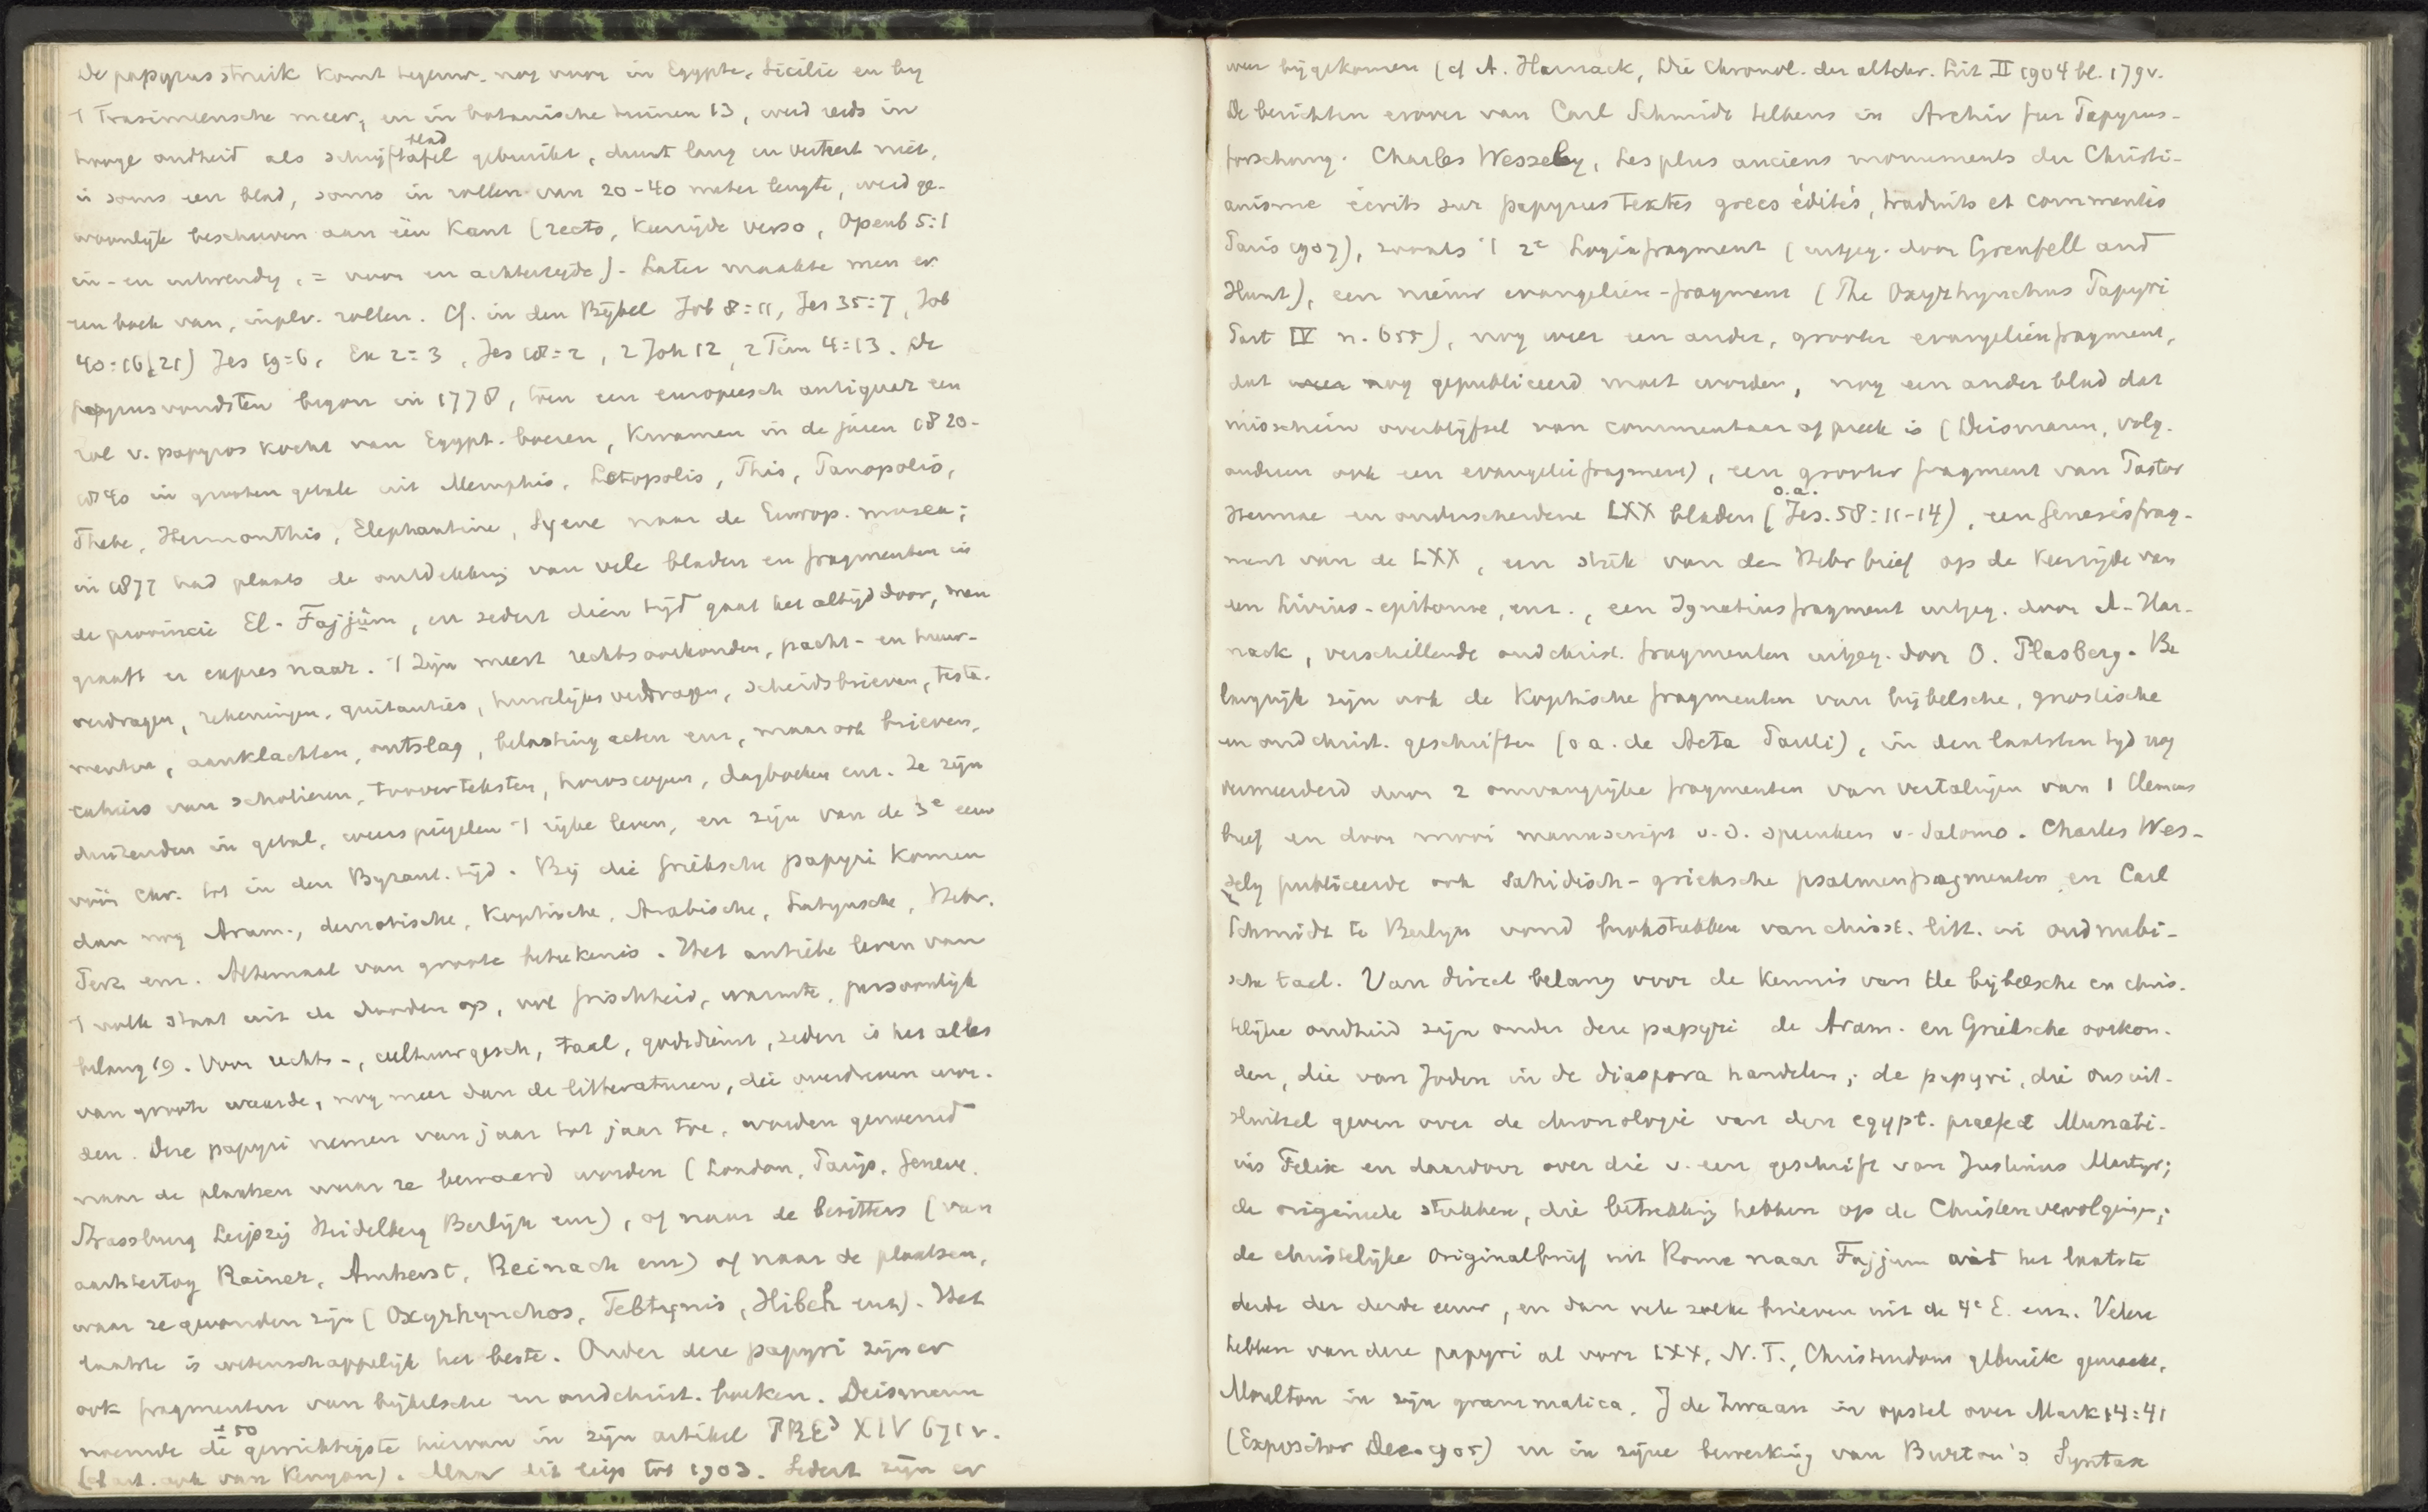 De papyrusstruik komt tegenw. nog voor in Egypte, Sicilie en bij
't Trasimeensche meer, en in botanische tuinen 13, werd reeds in
hooge oudheid als schrijftafel blad gebruikt, duurt lang en verteert niet,
is soms een blad, soms in rollen van 20-40 meter lengte, werd ge-
woonlijk beschreven aan één kant (recto, keerzijde verso, Openb 5:1
in- en uitwendig, = voor en achterzijde). Later maakte men er
een boek van, in plv. rollen. Cf. in den Bijbel Job 8:11, Jes 35:7, Job
40:16(21) Jes 19:6, Ex 2:3, Jes 18:2, 2 Joh 12, 2 Tim 4:13. De
papyrusvondsten begon in 1778, toen een europeesch antiquar een
rol v. papyros kocht van Egypt. boeren, kwamen in de jaren 1820-
1840 in grooten getale uit Memphis, Letopolis, This, Panopolis,
Thebe, Hermonthis, Elephantine, Syene naar de Europ. musea;
in 1877 had plaats de ontdekking van vele bladen en fragmenten in
de provincie El-Fajjûm, en sedert dien tijd gaat het altijd door, men
graaft er expres naar. 't Zijn meest rechtsoorkonden, pacht- en huur-
verdragen, rekeningen, quitanties, huwelijksverdragen, scheidsbrieven, testa-
menten, aanklachten, ontslag, belasting acten enz, maar ook brieven,
cahiers van scholieren, tooverteksten, horoscopen, dagboeken enz. Ze zijn
duizenden in getal, weerspiegelen 't rijke leven, en zijn van de 3e eeuw
vóór Chr. tot in den Byzant. tijd. Bij die Grieksche papyri komen
dan nog Aram., demotische, Koptische, Arabische, Latijnsche, Hebr.
Perz. enz. Altemaal van groote beteekenis. Het antieke leven van
't volk staat uit de dooden op, vol frischheid, warmte, persoonlijk
belang 19. Voor rechts-, cultuurgesch, taal, godsdienst, zeden is het alles
van groote waarde, nog meer dan de litteraturen, die overdreven wor-
den. Deze papyri nemen van jaar tot jaar toe, worden genoemd
naar de plaatsen waar ze bewaard worden (London, Parijs, Geneve,
Strassburg Leipzig Heidelberg Berlijn enz), of naar de bezitters (van
aartshertog Rainer, Amherst, Reinach enz) of naar de plaatsen,
waar ze gevonden zijn (Oxyrhynchos, Tebtynis, Hibeh enz). Het
laatste is wetenschappelijk het beste. Onder deze papyri zijn er
ook fragmenten van bijbelsche en oudchrist. boeken. Deismann
noemde de ± 50 gewichtigste hiervan in zijn artikel PRE3 XIV 671 v.
(cf art. ook van Kenyon). Maar dit liep tot 1903. Sedert zijn er
weer bijgekomen (cf A. Harnack, Die Chronol. der altchr. Lit II 1904 bl. 179v.
De berichten erover van Carl Schmidt telkens in Archiv fur Papyrus-
forschung. Charles Wessely, Les plus anciens monuments du Christi-
anisme écrits sur papyrus textes grecs édités, traduits et commentés
Paris 1907), zooals 't 2e Logiafragment (uitgeg. door Grenfell and
Hunt), een nieuw evangelien-fragment (The Oxyrhynchus Papyri
Part IV n. 655), nog weer een ander, grooter evangelienfragment,
dat nog gepubliceerd moet worden, nog een ander blad dat
misschien overblijfsel van commentaar of preek is (Deismann, volg.
anderen ook een evangeliefragment), een grooter fragment van Pastor
Hermae en onderscheidene LXX bladen (o.a. Jes. 58:11-14), een Genesisfrag-
ment van de LXX, een stuk van den Hebr brief op de keerzijde van
een Livius-epitome, enz., een Ignatiusfragment uitgeg. door A. Har-
nack, verschillende oudchrist. fragmenten uitgeg. door O. Plasberg. Be
langrijk zijn ook de Koptische fragmenten van bijbelsche, gnostische
en oudchrist. geschriften (o a. de Acta Pauli), in den laatsten tijd nog
vermeerderd door 2 omvangrijke fragmenten van vertalingen van 1 Clemens
brief en door mooi manuscript v. d. spreuken v. Salomo. Charles Wes-
sely publiceerde ook Sahidisch-grieksche psalmenfragmenten en Carl
Schmidt te Berlijn vond brokstukken van christ. litt. in oudnubi-
sche taal. Van direct belang voor de kennis van de bijbelsche en chris-
telijke oudheid zijn onder deze papyri de Aram. en Grieksche oorkon-
den, die van Joden in de diaspora handelen; de papyri, die ons uit-
sluitsel geven over de chronologie van den egypt. praefect Munati-
us Felix en daardoor over die v. een geschrift van Justinus Martyr;
de origineele stukken, die betrekking hebben op de Christenvervolgingen;
de christelijke Originalbrief uit Rome naar Fajjum uit het laatste
derde der derde eeuw, en dan vele zulke brieven uit de 4e E. enz. Velen
hebben van deze papyri al voor LXX, N.T., Christendom gebruik gemaakt,
Moulton in zijn grammatica, J de Zwaan in opstel over Mark 14:41
(Expositor Dec. 1905) en in zijne bewerking van Burton's Syntax